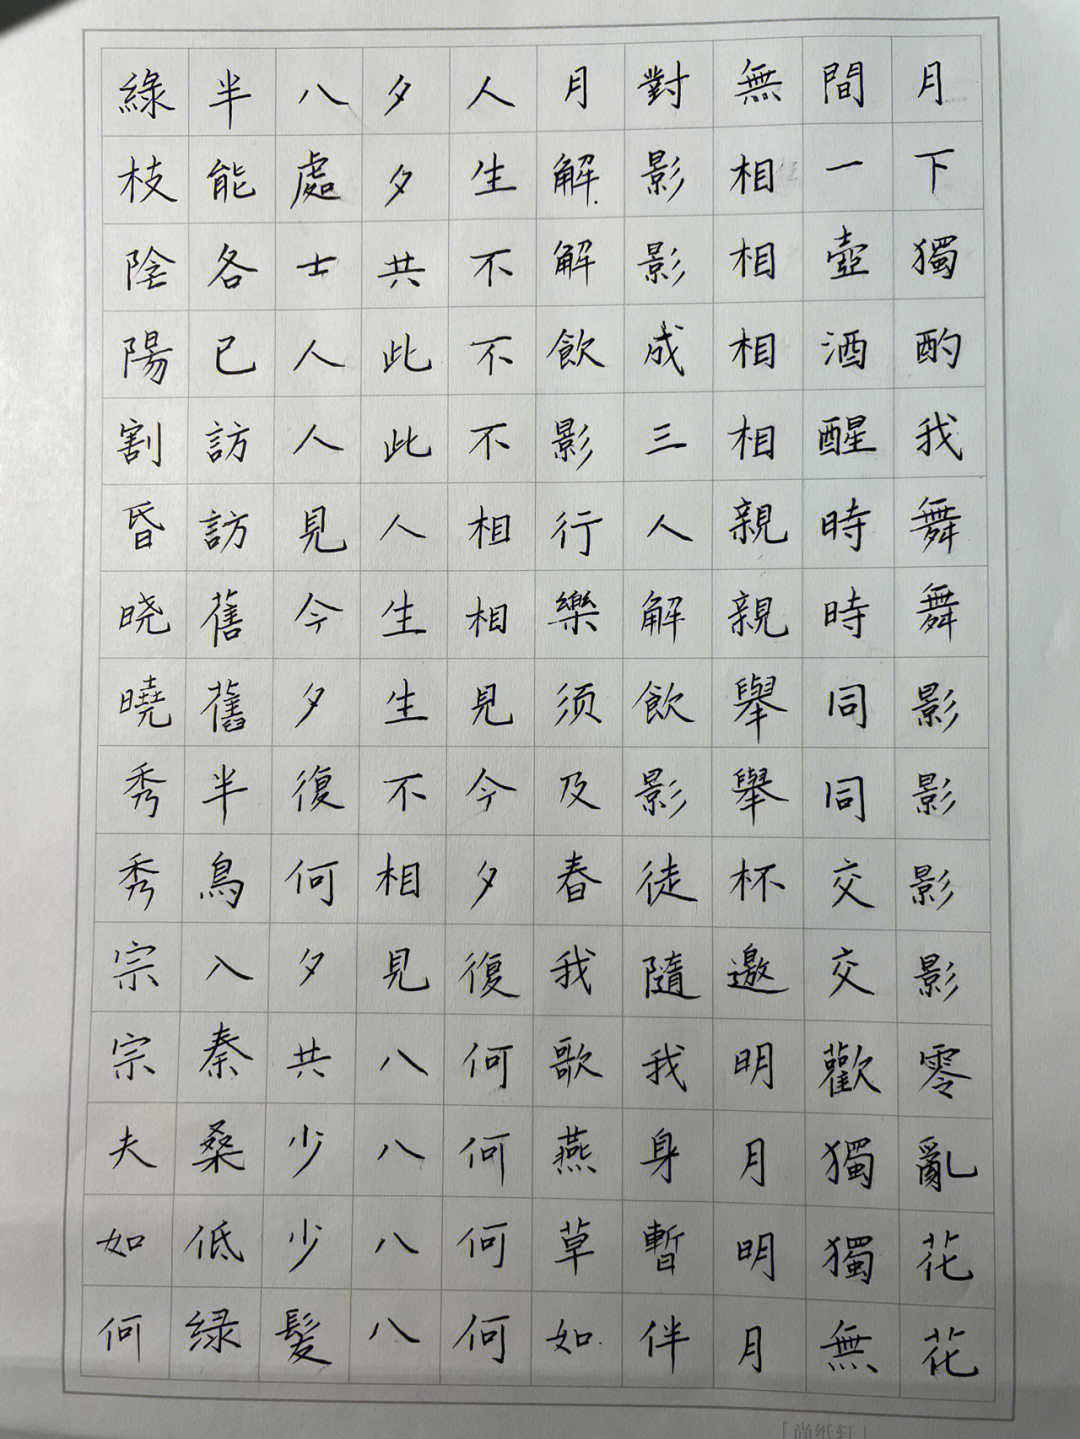 月下獨酌我舞舞影影影影零亂花花
間一壺酒醒時時同同交交歡獨獨無
無相相相相親親舉舉杯邀明月明月
對影影成三人解飲影徒隨我身暫伴
月解解飲影行樂须及春我歌燕草如
人生不不不相相見今夕復何何何何
夕夕共此此人生生不相見八八八八
八處士人人見今夕復何夕共少少髪
半能各已訪訪舊舊半鳥入秦桑低绿
綠枝陰陽割昏晓曉秀秀宗宗夫如何
「尚纸轩」